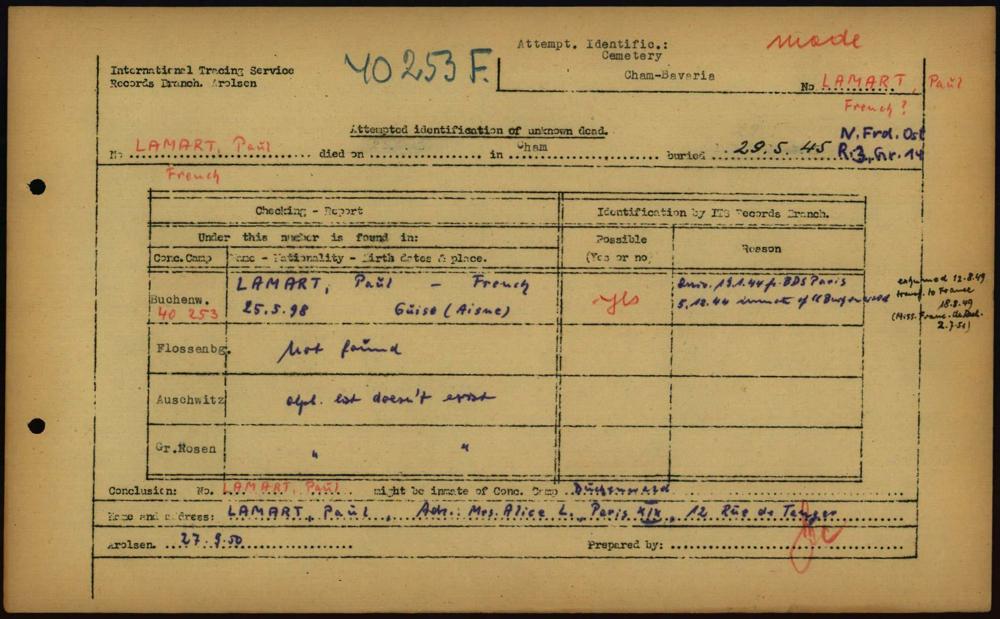 Attempt. Identific.:
made
Cemetery
40 253 F.
International Tracing Service
Records Branch. Arolsen
Cham-Bavaria
No LAMART, Paul
French?
Attempted identification of unknown dead.
N. Frd. Ost
R.3, Gr. 14
No LAMART, Paul died on in Cham buried 29.5.45
French
Checking - Report
Identification by ITS Records Branch.
Under this number is found in:
Possible
(Yes or no)
Reason
Conc.Camp
Name - Nationality - Birth dates & place.
Buchenw.
40 253
LAMART, Paul - French
25.5.98 Guise (Aisne)
yes
19.1.44 fr. BDS Paris
5.12.44 inmate of
exhumed 12.8.49
transf. to France
18.8.49
(Miss. Franc. de Rech.
2.7.51)
Flossenbg.
Not found
Auschwitz
alph. list doesn't exist
Gr.Rosen
" "
Conclusion: No. LAMART, Paul might be inmate of Conc. Camp Buchenwald
Name and address: LAMART, Paul, Adr.: Mrs. Alice L., Paris XIX, 12 Rue de Tanger
Arolsen. 27.9.50
Prepared by: